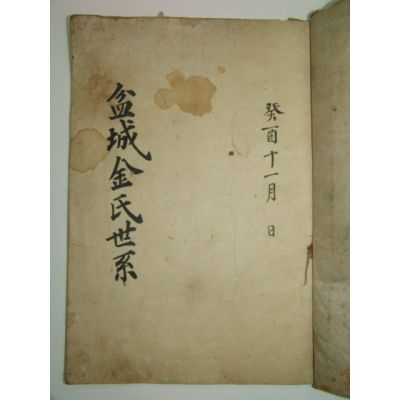 癸酉十一月 日
盆城金氏世系